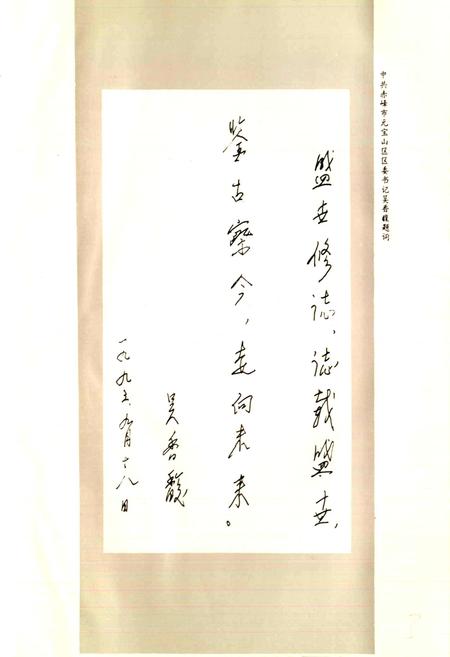 中共赤峰市元宝山区区委书记吴香馥题词
盛世修志，志载盛世，
鉴古察今，走向未来。
吴香馥
一九九五、九月十八日